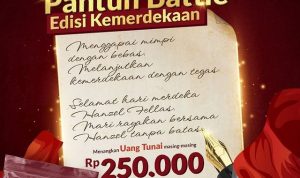 Pantun Battle
Edisi Kemerdekaan
Menggapai mimpi
dengan bebas
Melanjutkan
kemerdekaan dengan tegas
Selamat hari merdeka
Wanzol Fellas
Mari ragakan bersama
Wanzol tanpa batas
Menangkan Uang Tunai masing-masing
Rp 250.000